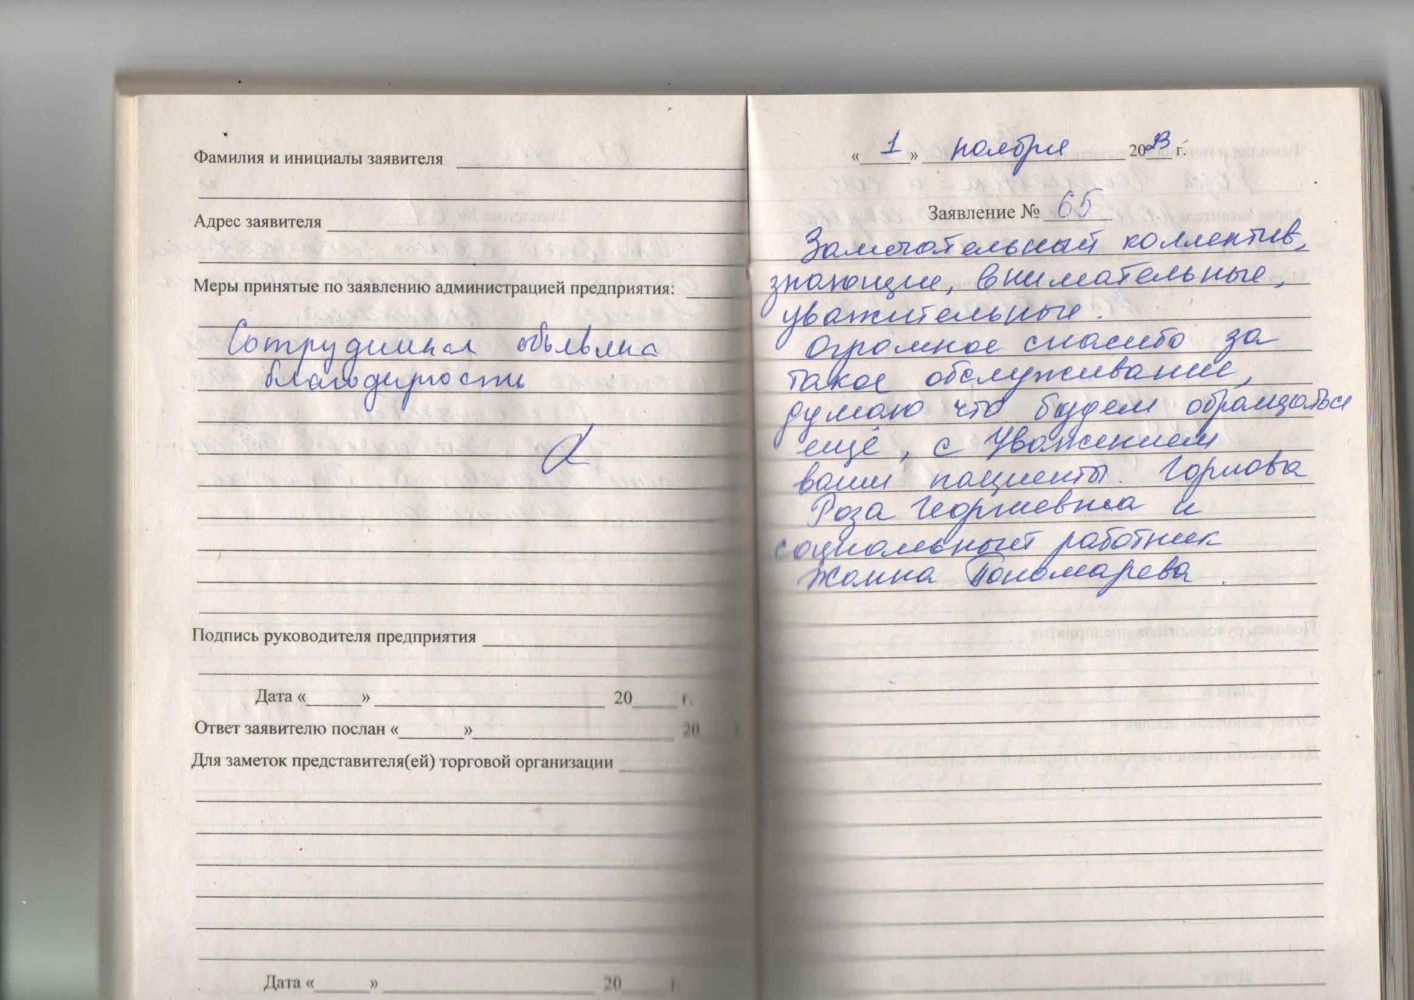 Фамилия и инициалы заявителя
Адрес заявителя
Меры принятые по заявлению администрацией предприятия:
Сотрудникам объявлена
благодарность
Подпись руководителя предприятия
Дата «     »      20     г.
Ответ заявителю послан «     »      20
Для заметок представителя(ей) торговой организации
Дата «     »      20     г.
« 1 » ноября 2023 г.
Заявление № 65
Замечательный коллектив,
знающие, внимательные,
уважительные.
Огромное спасибо за
такое обслуживание,
думаю что будем обращаться
ещё, с Уважением
ваши пациенты. Горлова
Роза Георгиевна и
социальный работник
Жанна Пономарева.